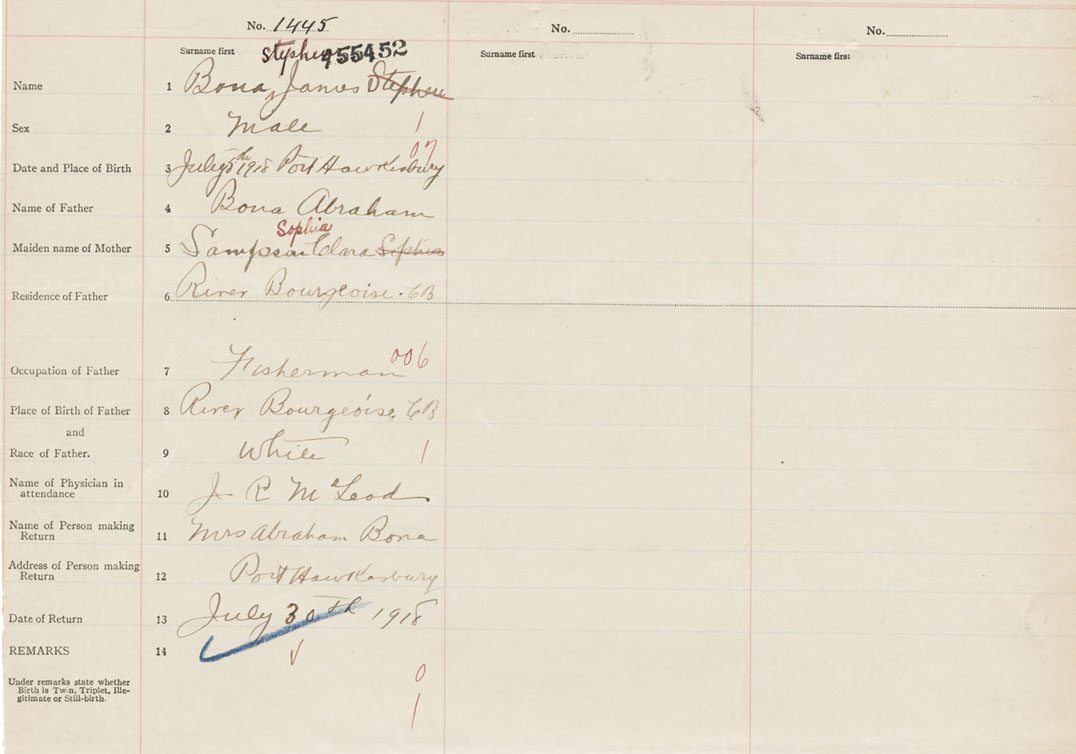 No. 1445
No.
No.
Surname first
Stephen 455452
Surname first
Surname first
Name 1 Bona, James Stephen
Sex 2 Male 1
07
Date and Place of Birth 3 July 5th 1918 Port Hawkesbury
Name of Father 4 Bona Abraham
Sophia
Maiden name of Mother 5 Sampson Clara Sophia
Residence of Father 6 River Bourgeoise. CB
Occupation of Father 7 Fisherman 006
Place of Birth of Father 8 River Bourgeoise CB
and
Race of Father. 9 White 1
Name of Physician in
attendance 10 J R McLeod
Name of Person making
Return 11 Mrs Abraham Bona
Address of Person making
Return 12 Port Hawkesbury
Date of Return 13 July 30th 1918
REMARKS 14
Under remarks state whether
Birth is Twin, Triplet, Ille-
gitimate or Still-birth.
0
1